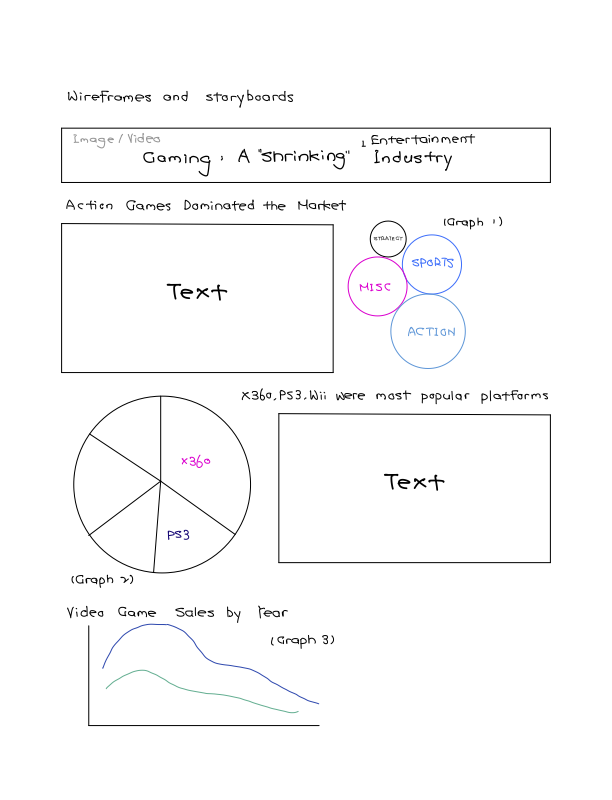 Wireframes and storyboards
Image / Video
Gaming, A "Shrinking" Entertainment Industry
Action Games Dominated the Market
(Graph 1)
STRATEGY
SPORTS
Text
MISC
ACTION
X360, PS3, Wii were most popular platforms
X360
Text
PS3
(Graph 2)
Video Game Sales by Year
(Graph 3)